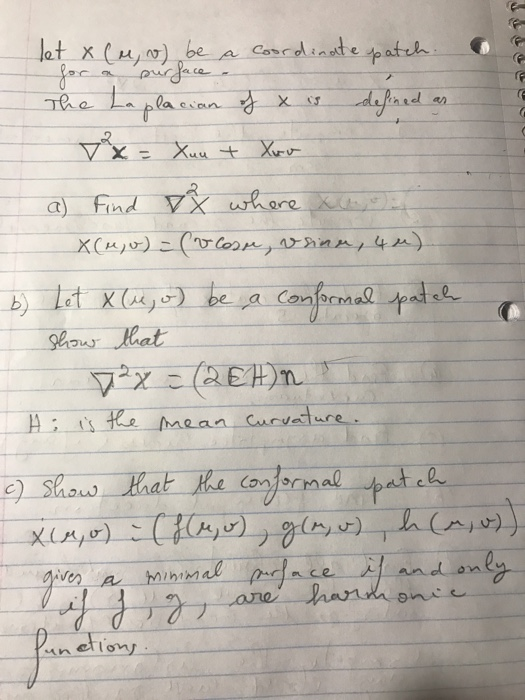 let x(u,v) be a coordinate patch.
for a surface.
The Laplacian of x is defined as
∇²x = Xuu + Xvv
a) Find ∇²X where
X(u,v) = (v cos u, v sin u, 4u)
b) Let X(u,v) be a conformal patch
show that
∇²X = (2EH)n
H: is the mean curvature.
c) show that the conformal patch
x(u,v) = (f(u,v), g(u,v), h(u,v))
gives a minimal surface if and only
if f, g, are harmonic
functions.